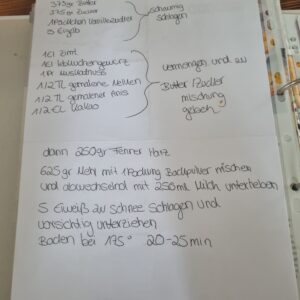 375gr Butter
375gr Zucker
1 Päckchen Vanillezucker
5 Eigelb
schaumig
schlagen
1 El Zimt
1 El Lebkuchengewürz
1 Pr Muskatnuss
1/2 TL gemahlene Nelken
1/2 TL gemahlener Anis
1/2 EL Kakao
vermengen und zu
Butter/Zucker
mischung
geben
dann 250gr Fenner Harz
625gr Mehl mit 1 Packung Backpulver mischen
und abwechselnd mit 250ml Milch unterheben
5 Eiweiß zu Schnee Schlagen und
vorsichtig unterziehen
Backen bei 175° 20-25min